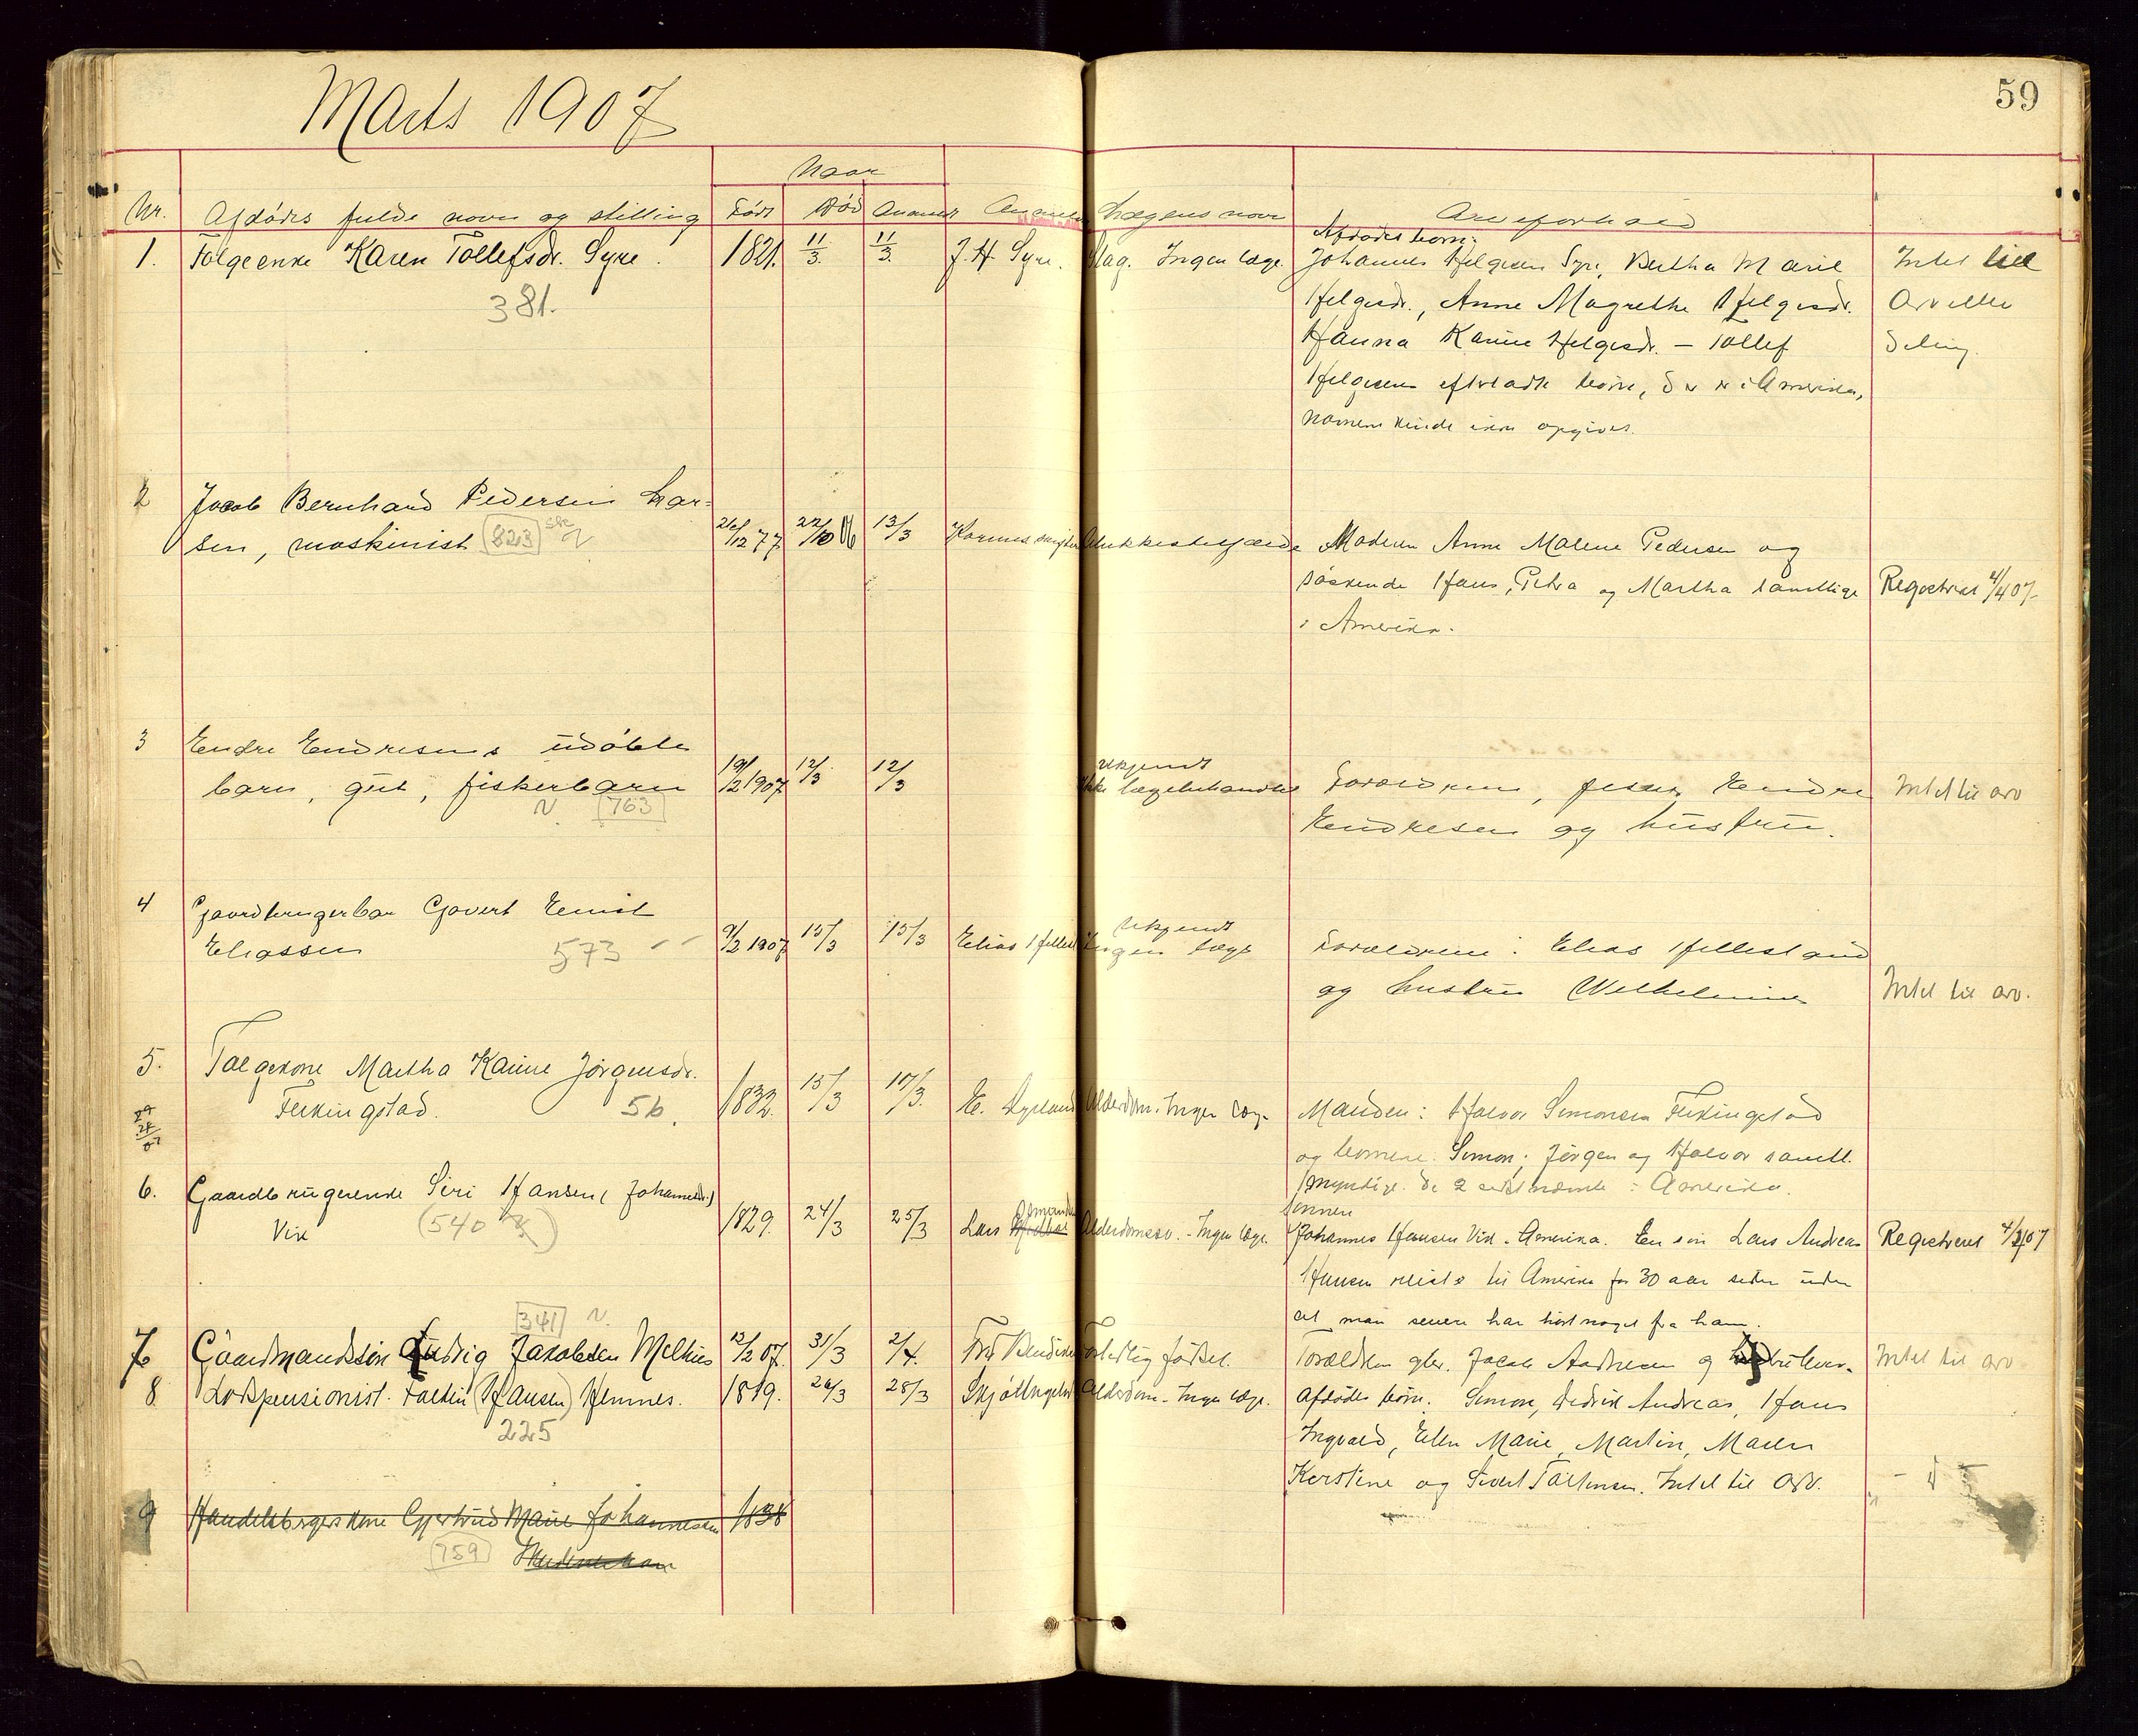 Marts 1907
59
Naar
Nr. Afdødes fulde navn og stilling Født Død Anmeldt Lægens navn Arveforhold
Afdødes børn:
1. Følgeenke Karen Tollefsdr. Syre. 1821. 11/3. 11/3. J. H. Syre. Slag. Ingen læge. Johannes Helgesen Syre, Bertha Marie Intet til
381. Helgesdr., Anne Magrethe Helgesdr. Arv eller
Hanna Karine Helgesdr. – Tollef deling.
Helgesens efterladte børn, der er i Amerika,
navnene kunde ikke opgives.
2 Jacob Bernhard Pedersen Lar-
sen, maskinist 823 26/12 77 22/10 06 13/3 Ulykkestilfælde Moderen Anne Malene Pedersen og
søskende Hans, Petra og Martha samtlige Registreret 4/4 07.
i Amerika.
3 Endre Endresens udøbte
ukjendt
barn, gut, fiskerbarn 19/2 1907 12/3 12/3 Ikke lægebehandlet Forældrene, fisker Endre Intet til arv
N 763 Endresen og hustru.
4 Gaardbrugerbar Govert Ernst
ukjendt
Eliassen 573 9/2 1907 15/3 15/3 Elias Hillest Ingen læge Forældrene: Elias Hillestand
og hustru Wilhelmine Intet til arv.
5. Følgekone Martha Karine Jørgensdr.
Ferkingstad. 56. 1832. 15/3 17/3. E. Dyrland Alderdom. Ingen læge Manden: Halvor Simonsen Ferkingstad
og børnene: Simon, Jørgen og Halvor samtl.
myndige. De 2 sidstnævnte i Amerika.
6. Gaardbrugerenke Siri Hansen (Johannesdr.)
Sønnen
Vik (540) 1829. 24/3 25/3 Lars Alderdomssv. - Ingen læge. Johannes Hansen Vik. Amerika. En søn Lars Andreas Registreret 4/4 07
Hansen reiste til Amerika for 30 aar siden uden
at man senere har hørt noget fra ham.
341 N.
7. Gaardmandssøn Ludvig Jakobsen Melhus 12/2 07. 31/3 2/4. For tidlig fødsel. Forældrene gbr. Jacob Andreasen og Intet til arv
8. Lodspensionist Hansen Hemnes. 1819. 26/3 28/3 Alderdom - Ingen læge. Afdødes børn: Simon, Didrik Andreas, Hans
225 Ingvald, Ellen Marie, Martin, Maren
Kerstine og Sivert Intet til arv.
9 Handelsborgerskone Gjertrud Marie Johannesen 1838
759 Skudeneshavn